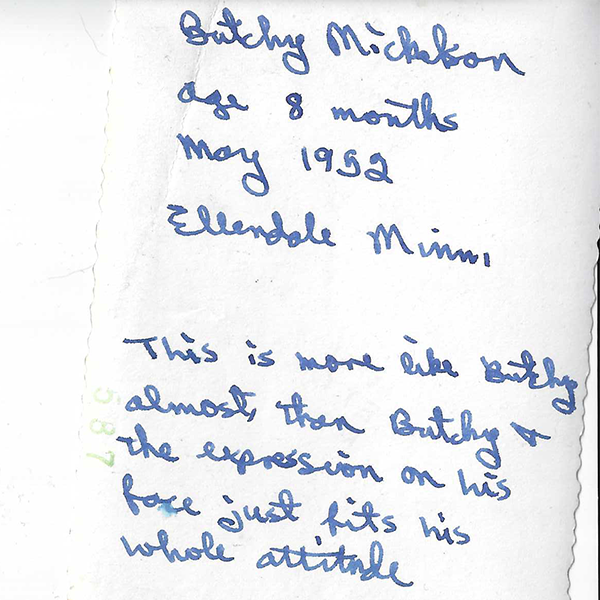 Butchy Mickelson
age 8 months
May 1952
Ellendale Minn.
This is more like Butchy
almost, than Butchy &
the expression on his
face just fits his
whole attitude
587